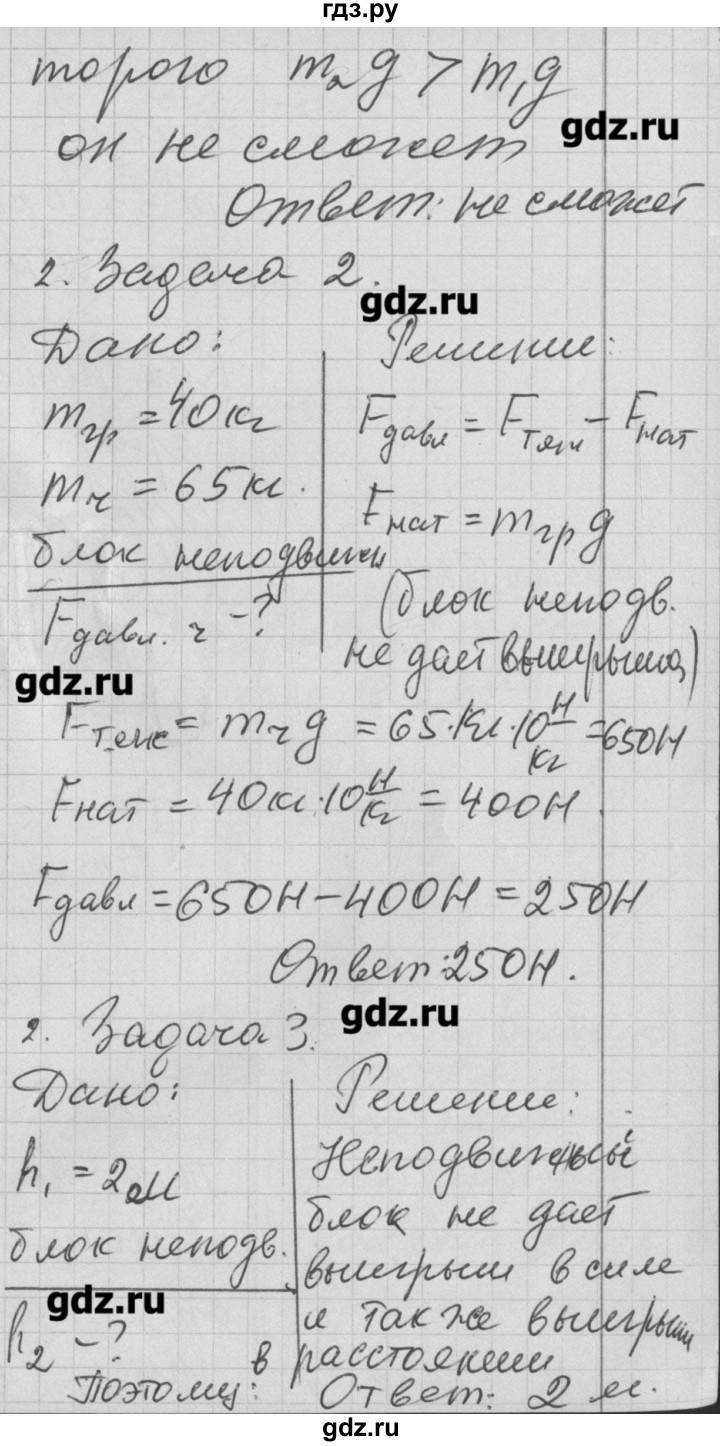 гдз.ру
торого m₂g > m₁g
он не сможет
gdz.ru
Ответ: не сможет
2. Задача 2.
gdz.ru
Дано:
mгр = 40 кг
mч = 65 кг.
блок неподвижн
Fдавл. ч - ?
Решение:
Fдавл = Fтяж - Fнат
Fнат = mгр g
(блок неподв.
не дает выигрыша)
gdz.ru
Fтяж = mч g = 65 кг · 10 Н/кг = 650Н
Fнат = 40 кг · 10 Н/кг = 400Н.
Fдавл = 650Н - 400Н = 250Н
Ответ: 250Н.
2. Задача 3.
gdz.ru
Дано:
h₁ = 2 м
блок неподв.
gdz.ru
h₂ - ?
Решение:
Неподвижный
блок не дает
выигрыш в силе
и также выигрыш
в расстоянии
Поэтому: Ответ: 2 м.
gdz.ru